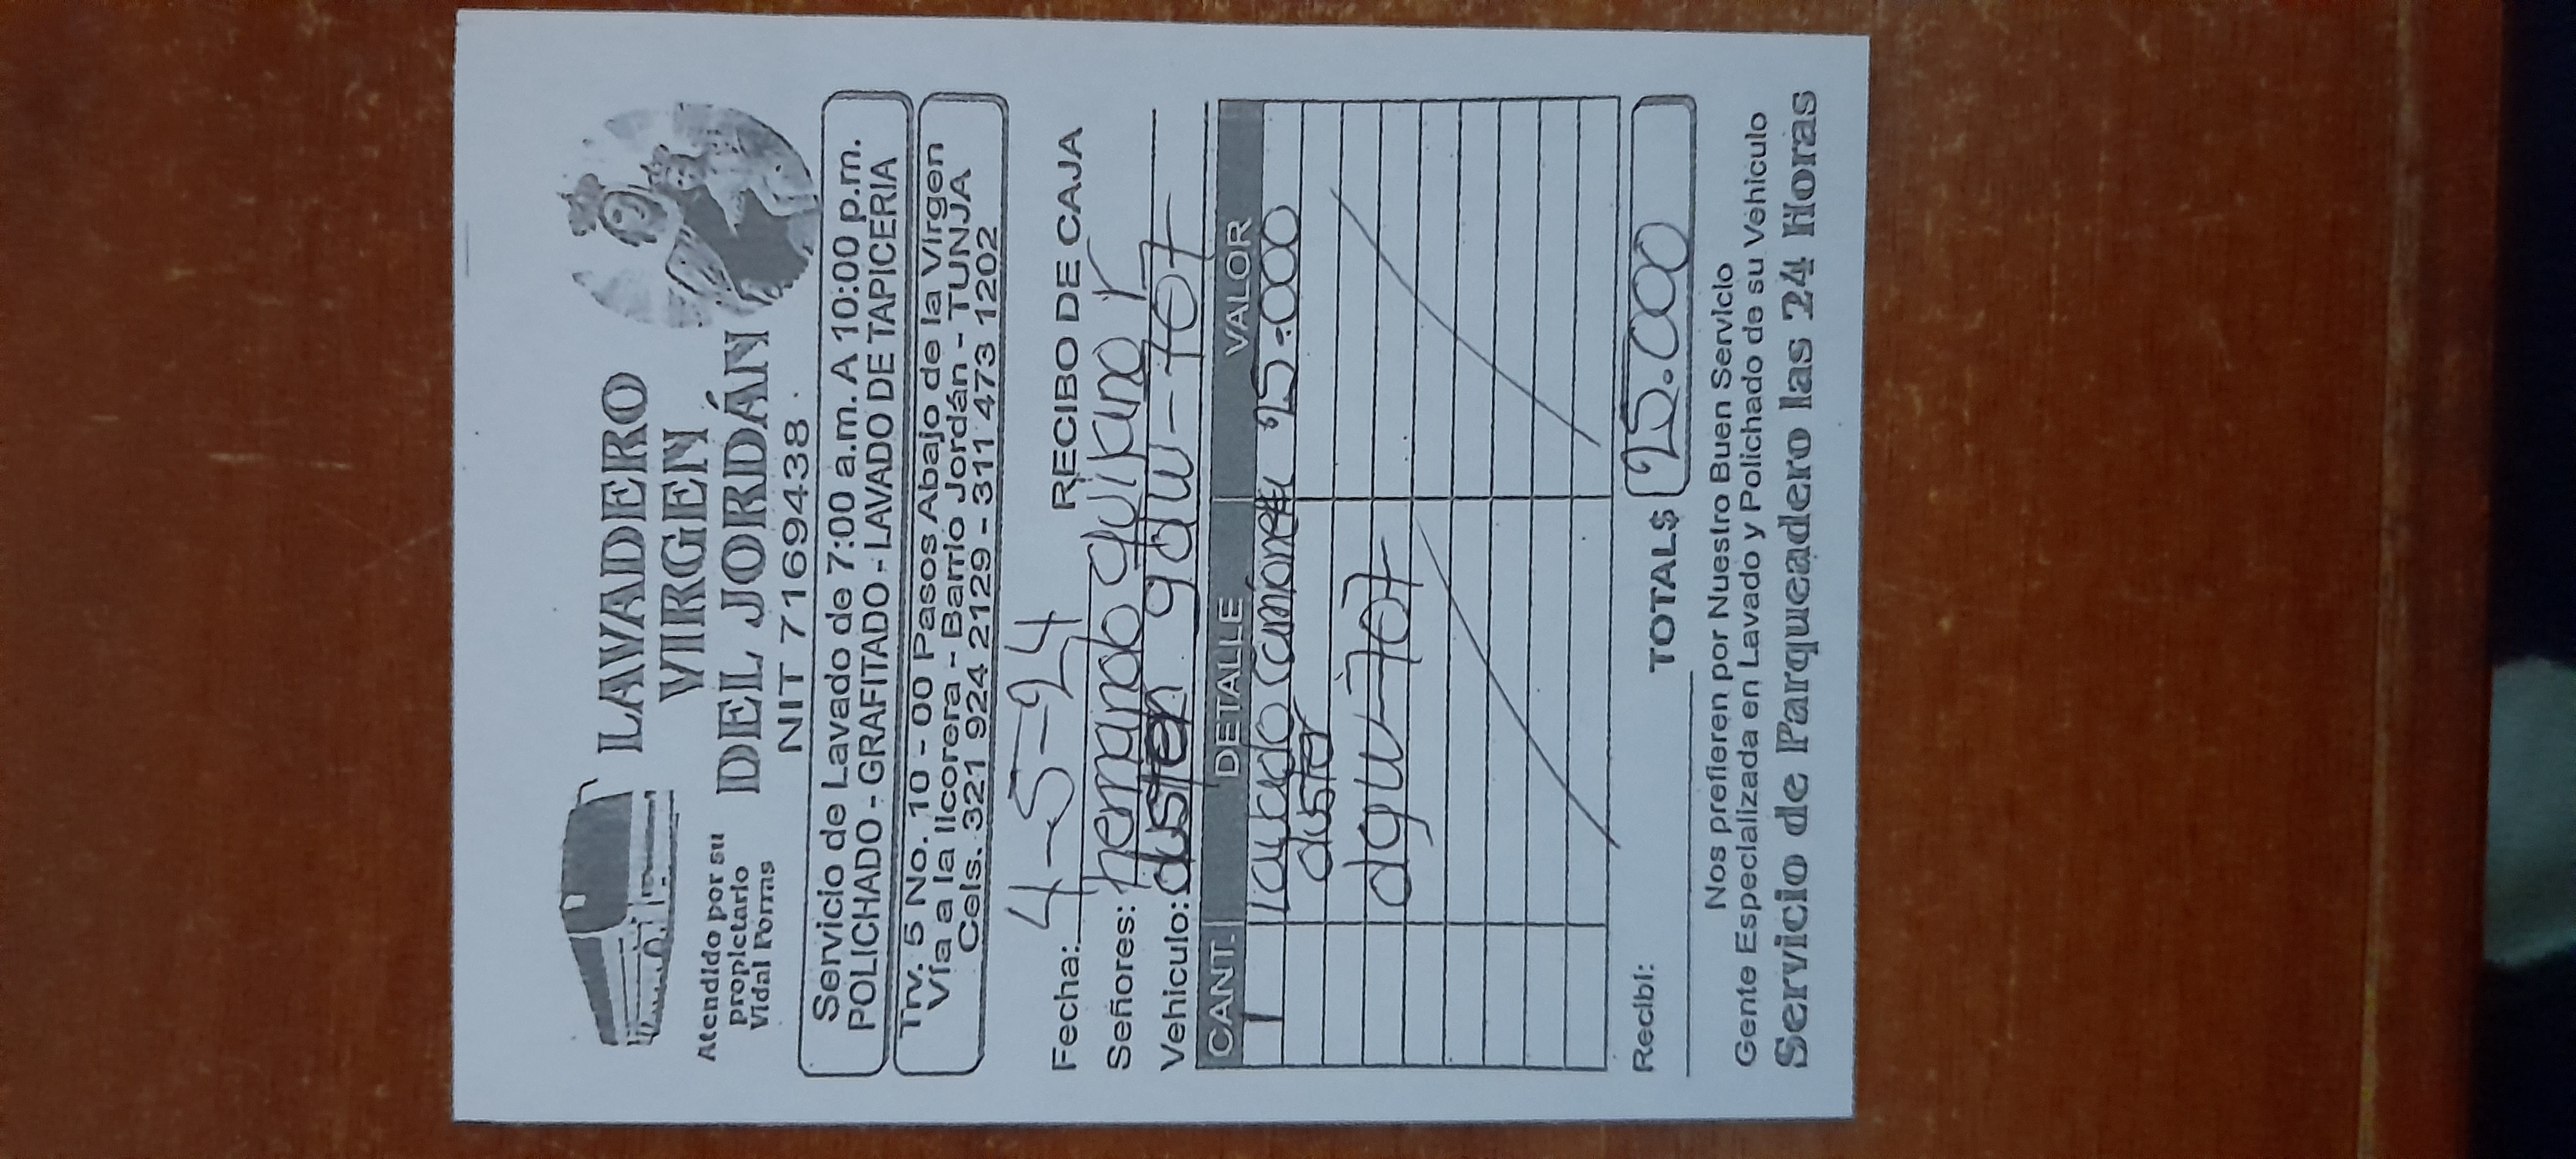 LAVADERO
VIRGEN
DEL JORDÁN
NIT 7169438
Atendido por su
propietario
Vidal Porras
Servicio de Lavado de 7:00 a.m. A 10:00 p.m.
POLICHADO - GRAFITADO - LAVADO DE TAPICERIA
Trv. 5 No. 10 - 00 Pasos Abajo de la Virgen
Vía a la licorera - Barrio Jordán - TUNJA
Cels. 321 924 2129 - 311 473 1202
Fecha: 4-5-24 RECIBO DE CAJA
Señores: hernando
Vehiculo: duster
CANT. DETALLE VALOR
1 lavado 25.000
duster
dgw-707
Recibí: TOTAL $ 25.000
Nos prefieren por Nuestro Buen Servicio
Gente Especializada en Lavado y Polichado de su Vehiculo
Servicio de Parqueadero las 24 Horas